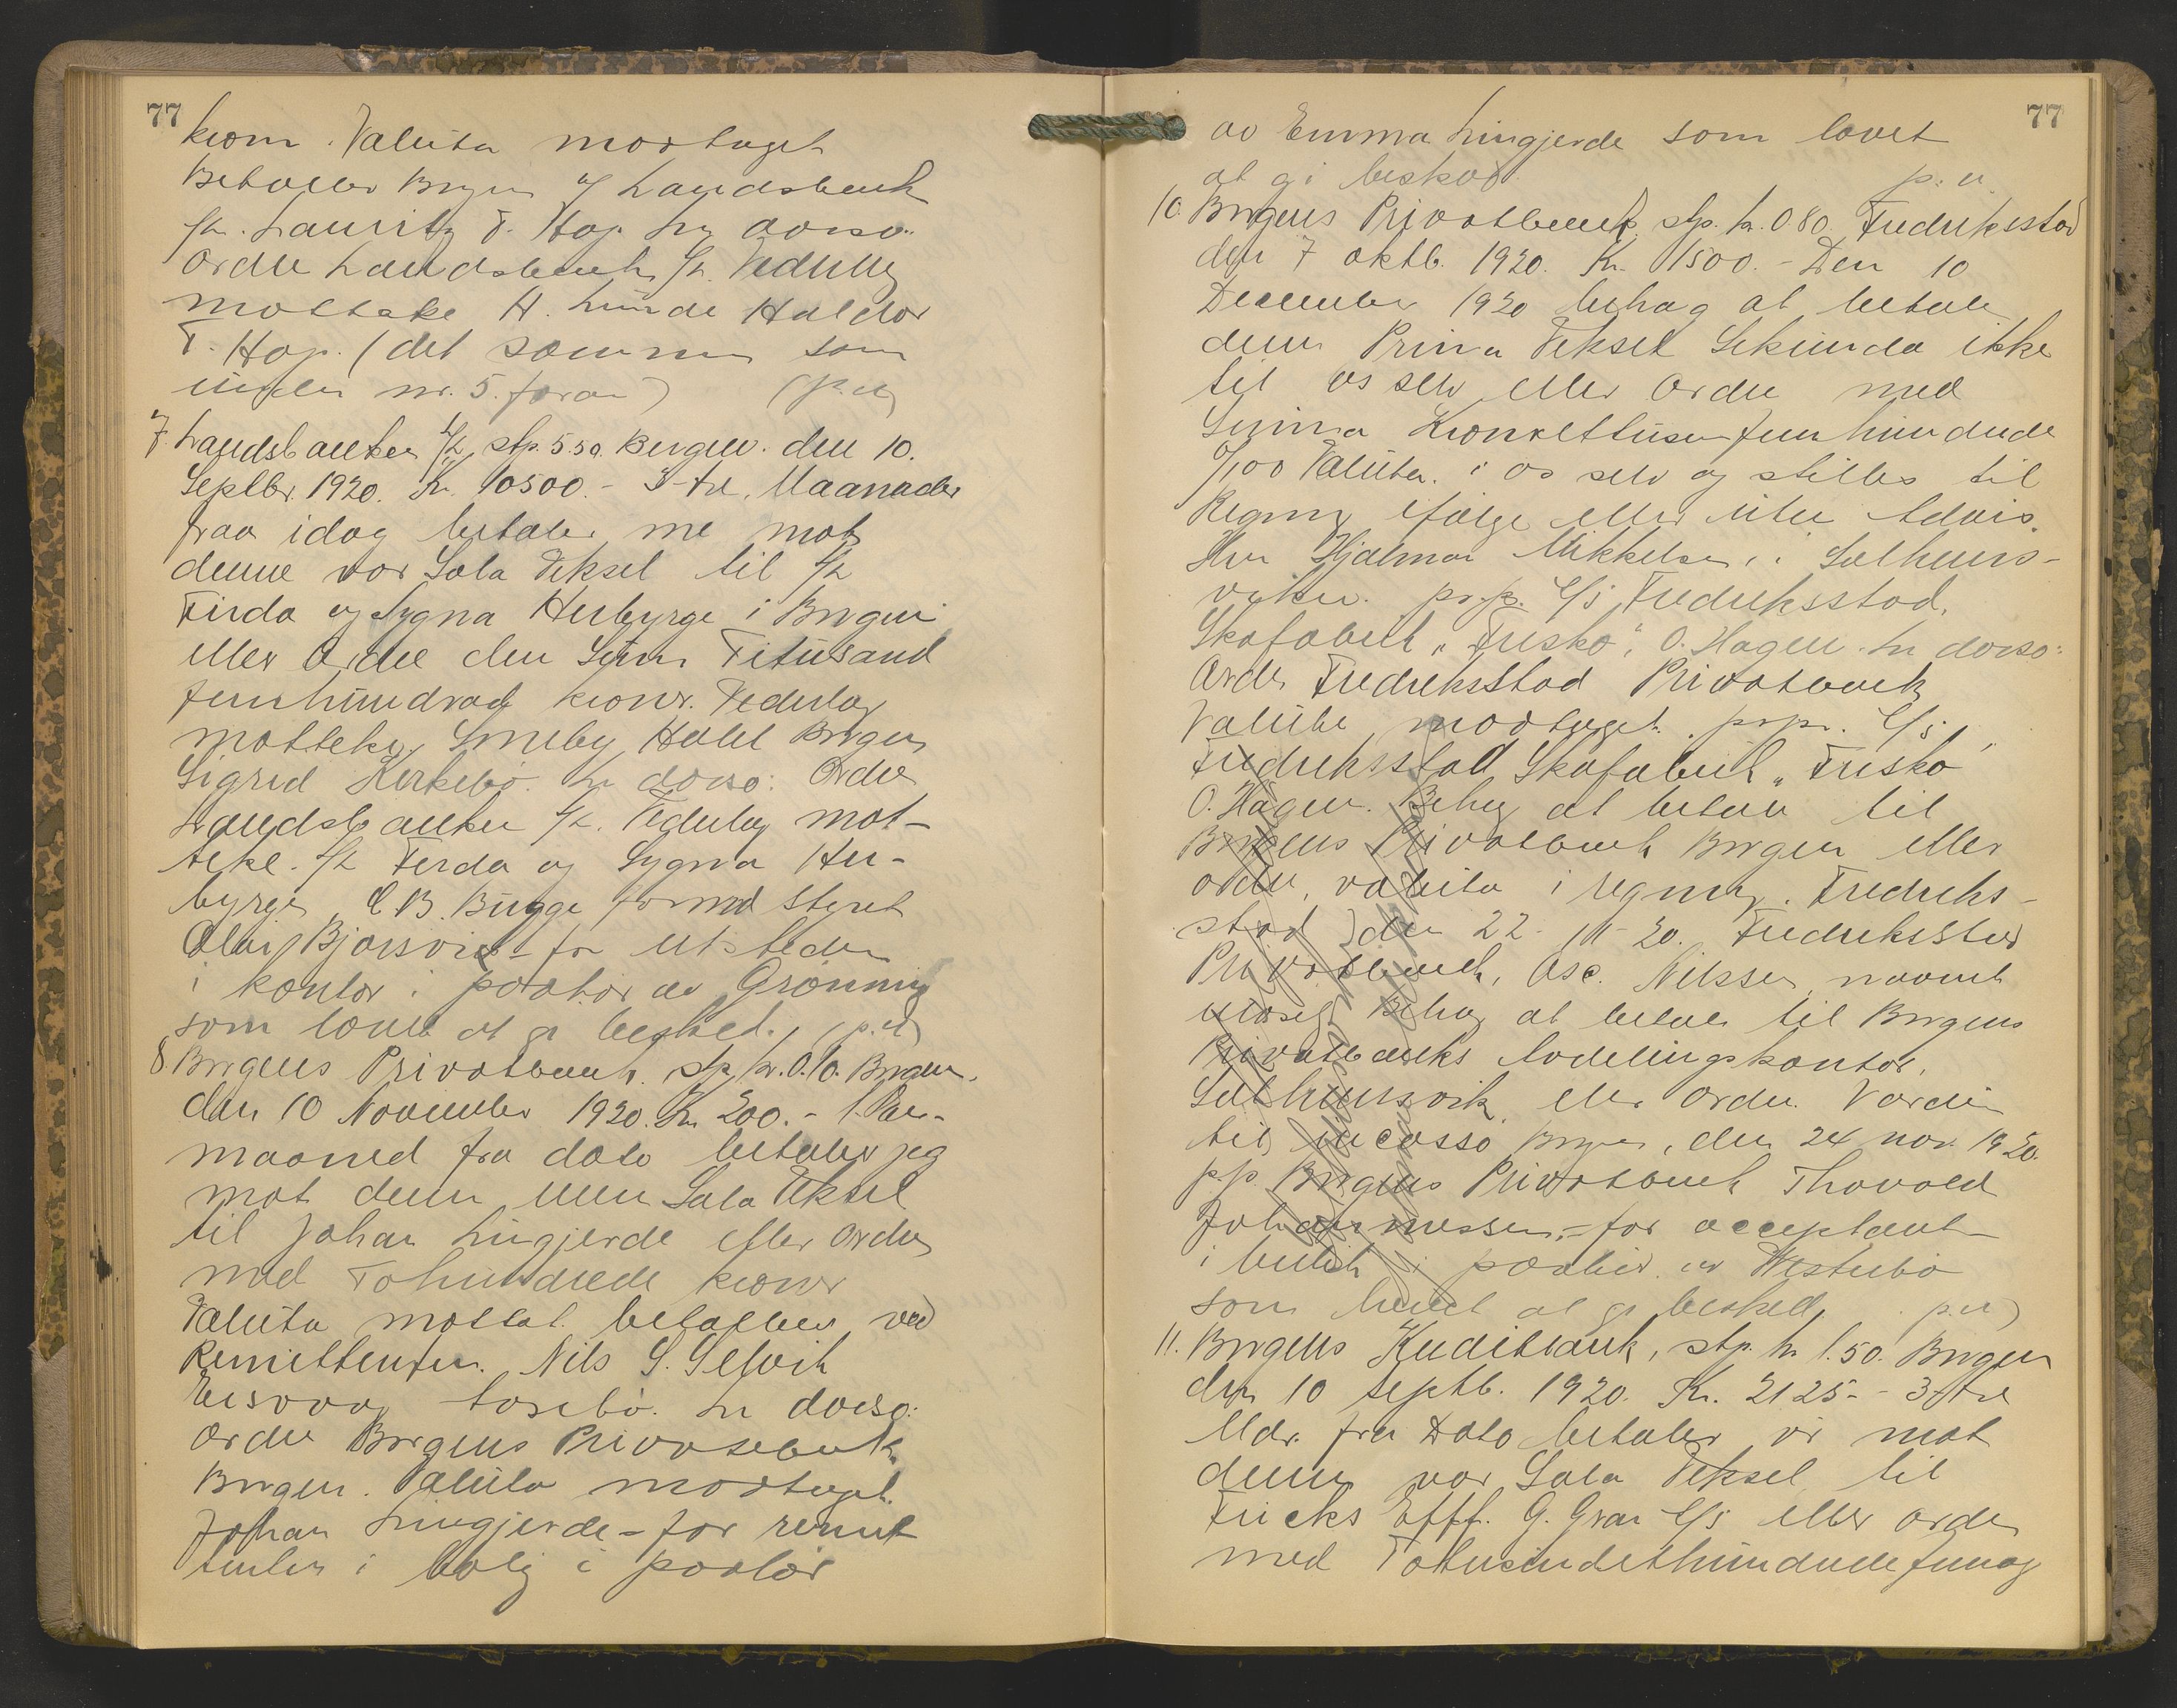 77
kron. Valuta mottaget
Betales Brgen a/ Landsbank
f/h. Lauritz T. Hop. In dorso:
Ordre Landsbank f/h. Vederlag
mottake H. Lunde Haldor
T. Hop. (det sammen som
under nr. 5. foran) (p.u)
7 Landsbanken f/h, stp. 5.50. Bergen. den 10.
Septbr. 1920. Kr. 10500.- 3-tre, Maanader
fraa idag betaler me mot
denne vor Sola Veksel til f/h
Firda og Sygna Herbyrge i Brgen
eller Ordre den Sum Titusand
femhundrad kroner. Vederlag
motteke, Smeby Hotel Brgen
Sigrid Kirkebø. In dorso: Ordre
Landsbanken f/h. Vederlag mot-
teke. f/h Firda og Sygna Her-
byrge C B. Bugge formd styret
Olai Bjørsvik - for utsteder
i kontor i portør av Grønning
som lovet at gi besked. (p.u)
8 Brgens Privatbank. stp. kr. 0.10. Brgen.
den 10 November 1920. Kr 200.- 1. En-
maaned fra dato betaler jeg
mot denne min Sola Veksel
til Johan Lingjerde eller ordre
med Tohundrede kroner
Valuta mottat. betalbar ved
Remittenten. Nils S. Selvik
Eisvaag Loxebø. In dorso:
Ordre Brgens Privatbank
Brgen. Valuta mottaget.
Johan Lingjerde - for remit
tenten i bolig i portør
77
av Emma Lingjerde som lovet
at gi beskod. p.u.
10. Brgens Privatbank, stp. kr. 0.80. Fredriksstad
den 7 oktb. 1920. Kr. 1500.- Den 10
December 1920 behag at betale
denne Prima Veksel Sekunda ikke
til os selv eller ordre med
Summa Kroner ettusen femhundrede
0/100 Valuta. i os selv og stilles til
Regning ifølge eller uten Advis.
Hr Hjalmar Mikkelsen, i Salhus-
viken. pr.p. A/s Fredriksstad,
Skofabrik "Frisko", O. Hagen. In dorso:
Ordre Fredriksstad Privatbank
Valuta mottaget. pr.p. A/s,
Fredriksstad Skofabrik "Frisko
O. Hagen. Behag at betale til
Brgens Privatbank Brgen eller
ordre, valuta i regning. Fredriks-
stad den 22-11-20. Fredriksstad
Privatbank, Osc. Nilssen, navnet
Behag at betale til Brgens
Privatbanks Avdelingskontor,
Salhusvik eller ordre. Værdi
til incasso Brgen, den 24 nov. 1920.
p.p. Brgens Privatbank Thorvald
Johannessen,- for acceptant
i butik i portør av Westerbø
som lovet at gi besked, p.u)
11. Brgens Kreditbank, stp. kr 1.50. Brgen
den 10 septb. 1920. Kr. 2125.- - 3-tre
Mdr. fra Dato betaler vi mot
denne vor Sola Veksel, til
Fricks Efff. G. Gran A/s eller ordre
med Totusindethundredefemog